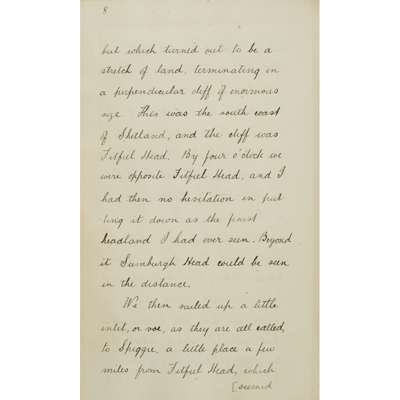 8
but which turned out to be a
stretch of land, terminating in
a perpendicular cliff of enormous
size. This was the south coast
of Shetland, and the cliff was
Fitful Head. By four o'clock we
were opposite Fitful Head, and I
had then no hesitation in put
ting it down as the finest
headland I had ever seen. Beyond
it Sumburgh Head could be seen
in the distance.
We then sailed up a little
inlet, or voe, as they are all called,
to Spiggie, a little place a few
miles from Fitful Head, which
[seemed